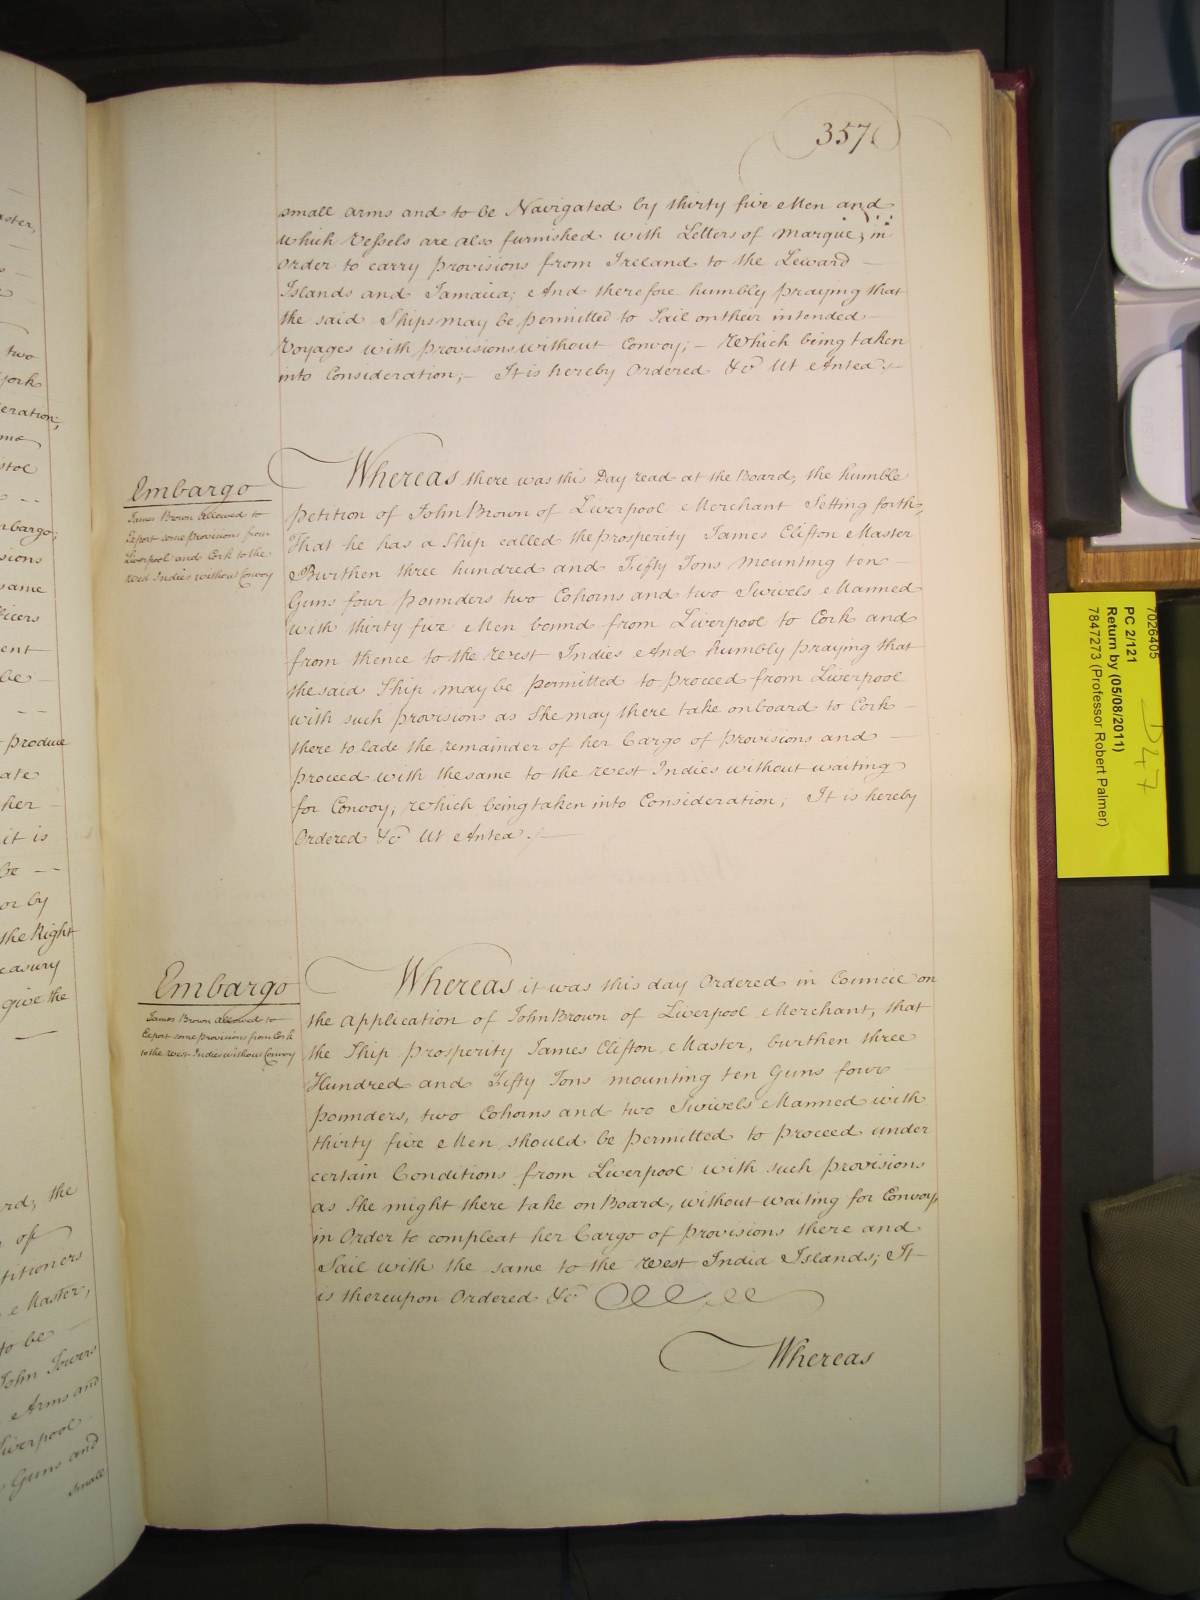 357
small arms and to be Navigated by thirty five Men and
which Vessels are also furnished with Letters of Marque; in
Order to carry Provisions from Ireland to the Leward
Islands and Jamaica; And therefore humbly praying that
the said Ships may be permitted to Sail on their intended
Voyages with Provisions without Convoy; – Which being taken
into Consideration; – It is hereby Ordered &c Ut Antea.
Embargo
James Brown allowed to
Export some provisions from
Liverpool and Cork to the
West Indies without Convoy
Whereas there was this Day read at the Board, the humble
Petition of John Brown of Liverpool Merchant Setting forth,
That he has a Ship called the prosperity James Clifton Master
Burthen three hundred and Fifty Tons mounting ten
Guns four pounders two Cohorns and two Swivels Manned
with thirty five Men bound from Liverpool to Cork and
from thence to the West Indies And humbly praying that
the said Ship may be permitted to proceed from Liverpool
with such provisions as She may there take onboard to Cork
there to lade the remainder of her Cargo of provisions and
proceed with the same to the West Indies without waiting
for Convoy; Which being taken into Consideration; It is hereby
Ordered &c Ut Antea.
Embargo
James Brown allowed to
Export some provisions from Cork
to the West Indies without Convoy
Whereas it was this day Ordered in Council on
the Application of John Brown of Liverpool Merchant, that
the Ship Prosperity James Clifton Master, burthen three
Hundred and Fifty Tons mounting ten Guns four
pounders, two Cohorns and two Swivels Manned with
thirty five Men should be permitted to proceed under
certain Conditions from Liverpool with such provisions
as She might there take on Board, without waiting for Convoy
in Order to compleat her Cargo of Provisions there and
Sail with the same to the West India Islands; It
is thereupon Ordered &c
Whereas
two
York
eration;
istol
mbargo;
sions
same
ficers
ent
be
produce
ate
her
it is
be
or by
the Right
easury
give the
rd, the
of
titioners
Master,
to be
John Towers
Arms and
Liverpool
Guns and
small
7026405
PC 2/121
Return by (05/08/2011)
7847273 (Professor Robert Palmer)
D47